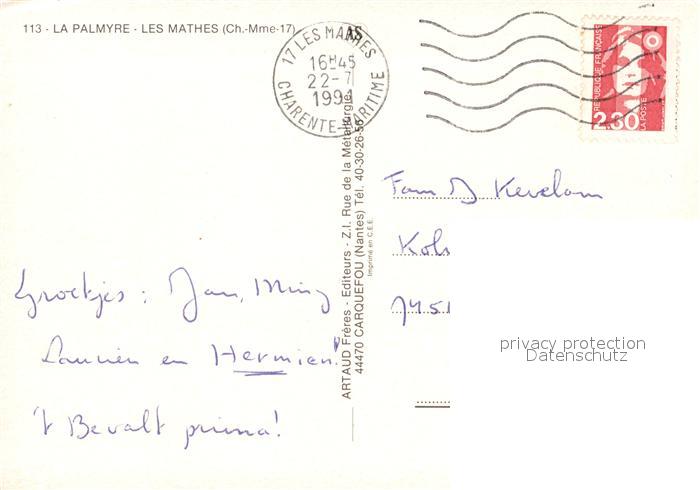 113 - LA PALMYRE - LES MATHES (Ch.-Mme-17)
17 LES MATHES
16H45
22-7
1991
CHARENTE-MARITIME
RÉPUBLIQUE FRANÇAISE
2,30
LA POSTE
ARTAUD Frères - Editeurs - Z.I. Rue de la Métallurgie
44470 CARQUEFOU (Nantes) Tél. 40-30-26-56
Imprimé en C.E.E.
Fam
7451
privacy protection
Datenschutz
Groetjes: Jan, Miny
en Hermien!
't Bevalt prima!